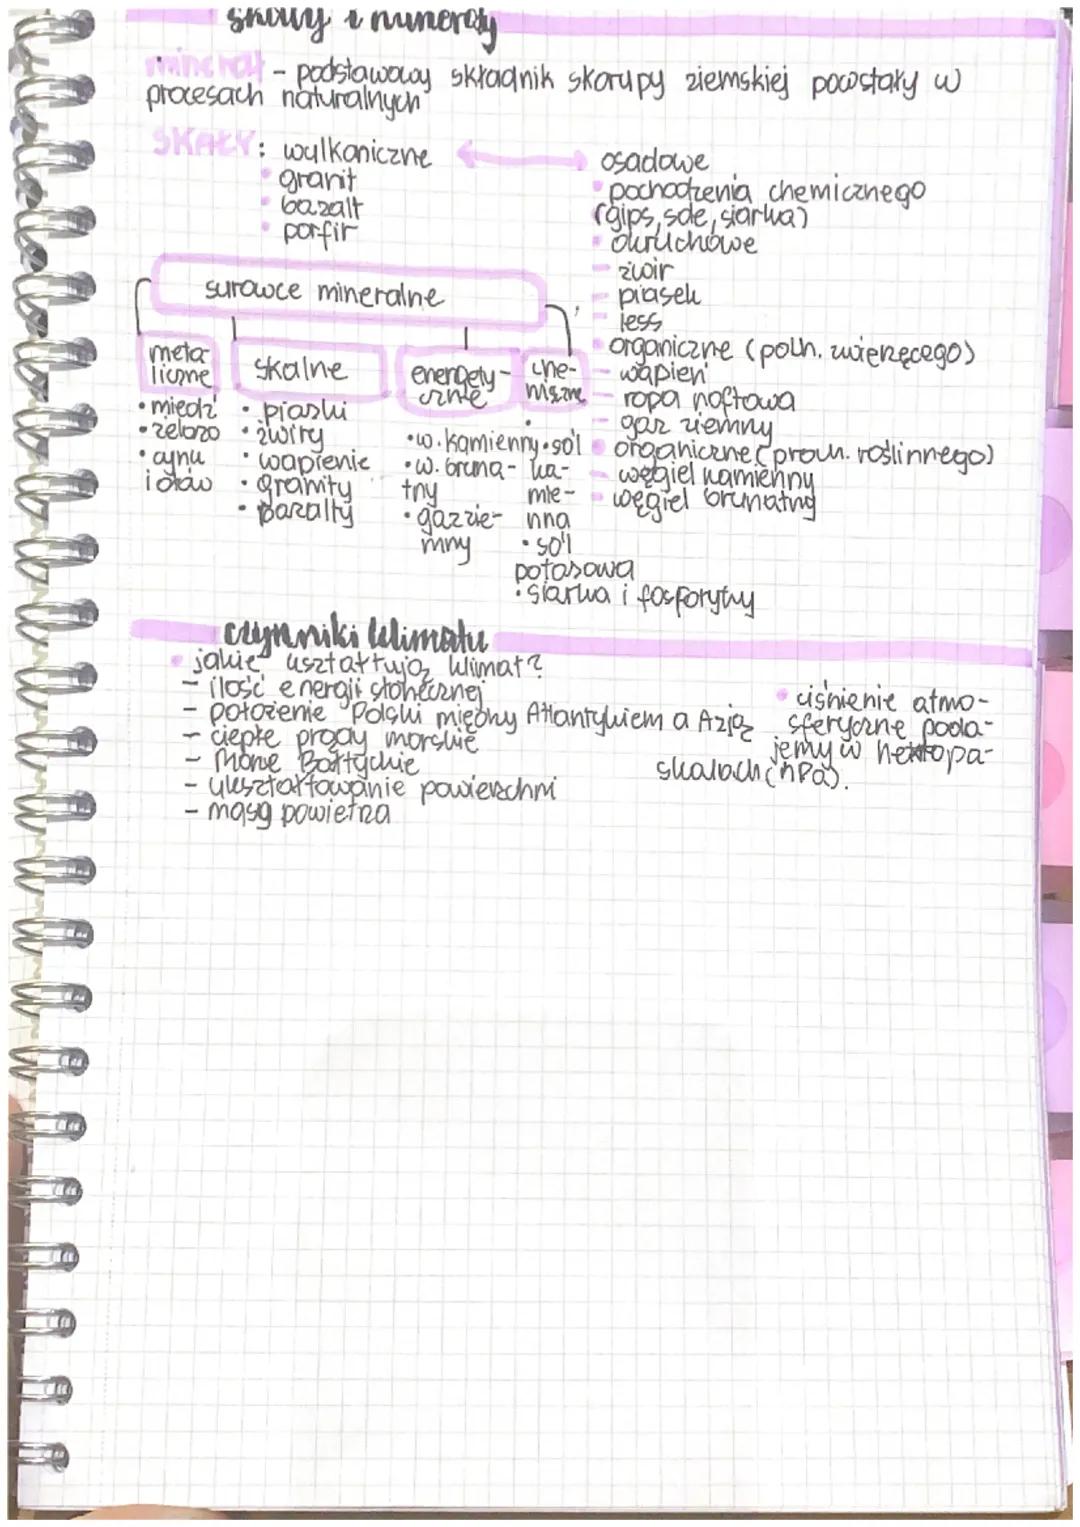 skały i minerały
minerał - podstawowy składnik skorupy ziemskiej powstały w
procesach naturalnych
SKAŁY: wulkaniczne
• granit
• bazalt
• porfir
osadowe
• pochodzenia chemicznego
(gips, sole, siarka)
• okruchowe
- żwir
- piasek
- less
• organiczne (poch. zwierzęcego)
- wapień
- ropa naftowa
- gaz ziemny
• organiczne (poch. roślinnego)
- węgiel kamienny
- węgiel brunatny
surowce mineralne
meta-
liczne
• miedź
• żelazo
• cynk
i ołów
skalne
• piaski
• żwiry
• wapienie
• granity
• bazalty
energety-
czne
• w. kamienny
• w. bruna-
tny
• gaz zie-
mny
che-
miczne
• sól
ka-
mie-
nna
• sól
potasowa
• siarka i fosforyty
czynniki klimatu
• jakie kształtują klimat?
- ilość energii słonecznej
- położenie Polski między Atlantykiem a Azją
- ciepłe prądy morskie
- Morze Bałtyckie
- ukształtowanie powierzchni
- masy powietrza
• ciśnienie atmo-
sferyczne poda-
jemy w hektopa-
skalach (hPa).